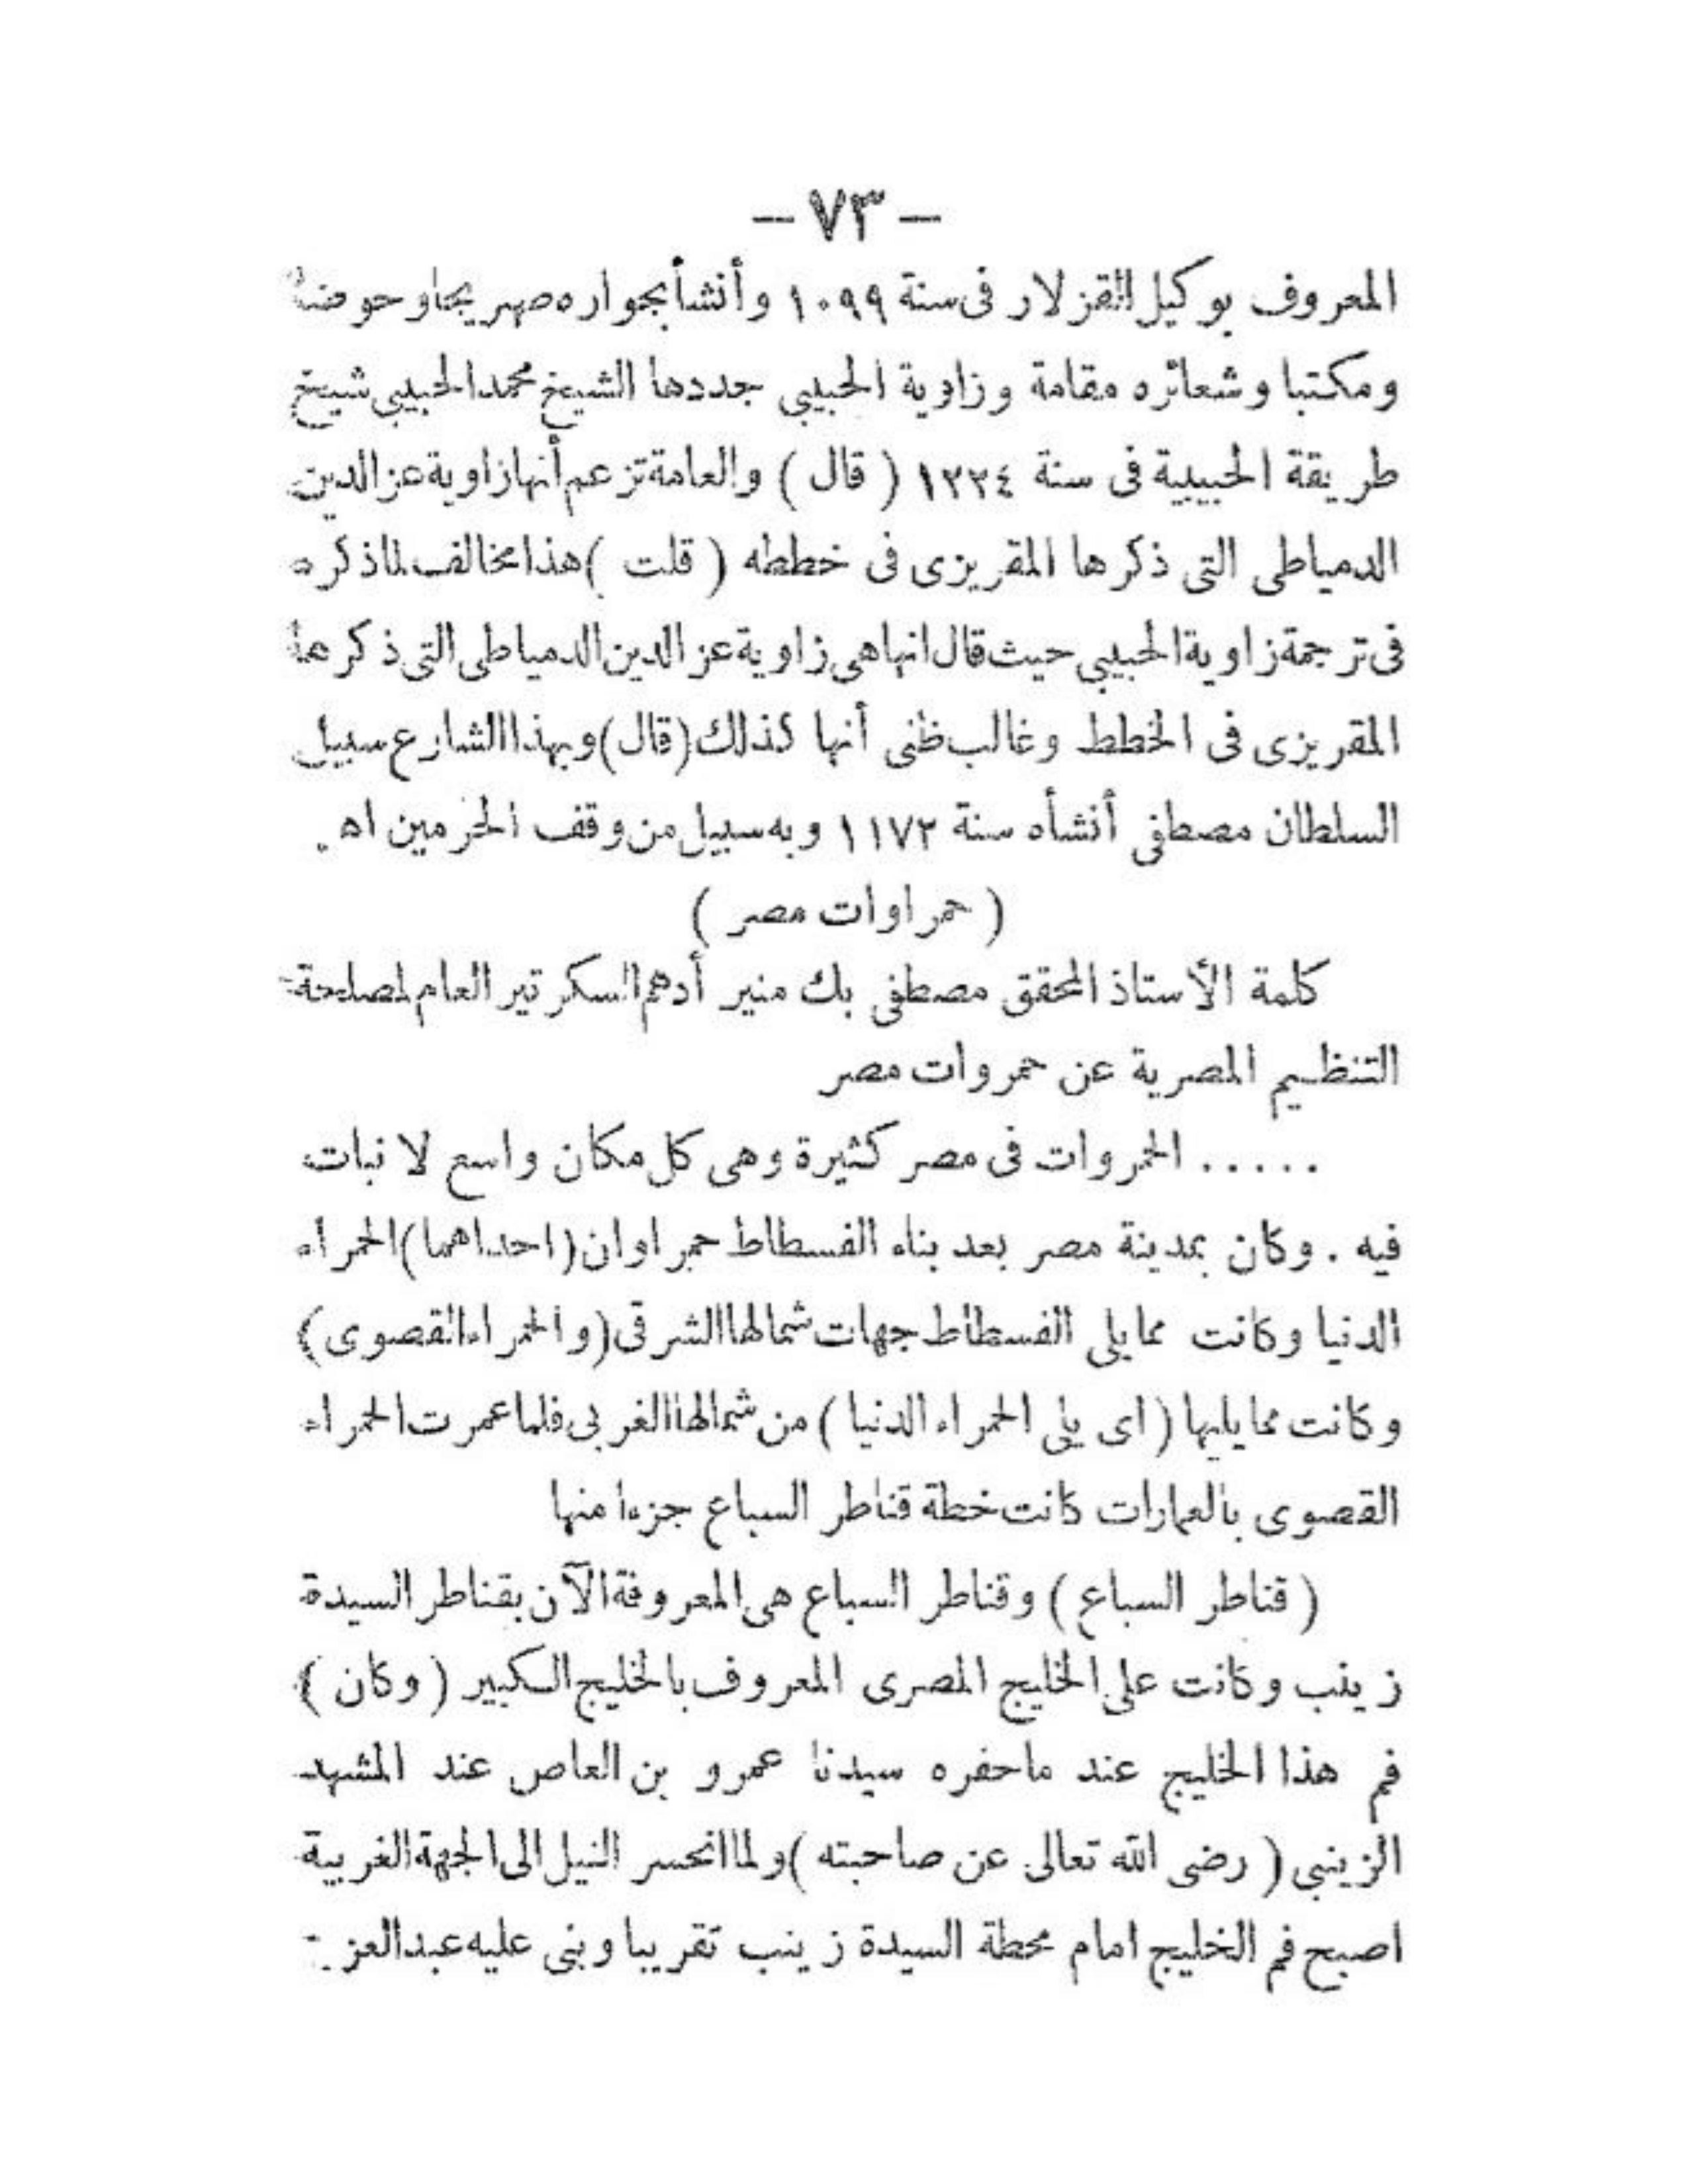 — ٧٣ —
المعروف بوكيل القزلار فى سنة ١٠٩٩ وأنشأ بجواره صهريجا وحوضا
ومكتبا وشعائره مقامة وزاوية الحبيبى جددها الشيخ محمد الحبيبى شيخ
طريقة الحبيبية فى سنة ١٢٢٤ ( قال ) والعامة تزعم أنها زاوية عز الدين
الدمياطى التى ذكرها المقريزى فى خططه ( قلت ) هذا مخالف لما ذكره
فى ترجمة زاوية الحبيبى حيث قال انها هى زاوية عز الدين الدمياطى التى ذكرها
المقريزى فى الخطط وغالب ظنى أنها كذلك (قال) وبهذا الشارع سبيل
السلطان مصطفى أنشأه سنة ١١٧٢ وبه سبيل من وقف الحرمين اه .
( حمراوات مصر )
كلمة الأستاذ المحقق مصطفى بك منير أدهم السكرتير العام لمصلحة
التنظيم المصرية عن حمروات مصر
..... الحمروات فى مصر كثيرة وهى كل مكان واسع لا نبات
فيه . وكان بمدينة مصر بعد بناء الفسطاط حمراوان (احداهما) الحمراء
الدنيا وكانت مما يلى الفسطاط جهات شمالها الشرقى (والحمراء القصوى)
وكانت مما يليها ( اى يلى الحمراء الدنيا ) من شمالها الغربى فلما عمرت الحمراء
القصوى بالعمارات كانت خطة قناطر السباع جزءا منها
( قناطر السباع ) وقناطر السباع هى المعروفة الآن بقناطر السيدة
زينب وكانت على الخليج المصرى المعروف بالخليج الكبير ( وكان )
فم هذا الخليج عند ماحفره سيدنا عمرو بن العاص عند المشهد
الزينبى ( رضى الله تعالى عن صاحبته ) ولما انحسر النيل الى الجهة الغربية
اصبح فم الخليج امام محطة السيدة زينب تقريبا وبنى عليه